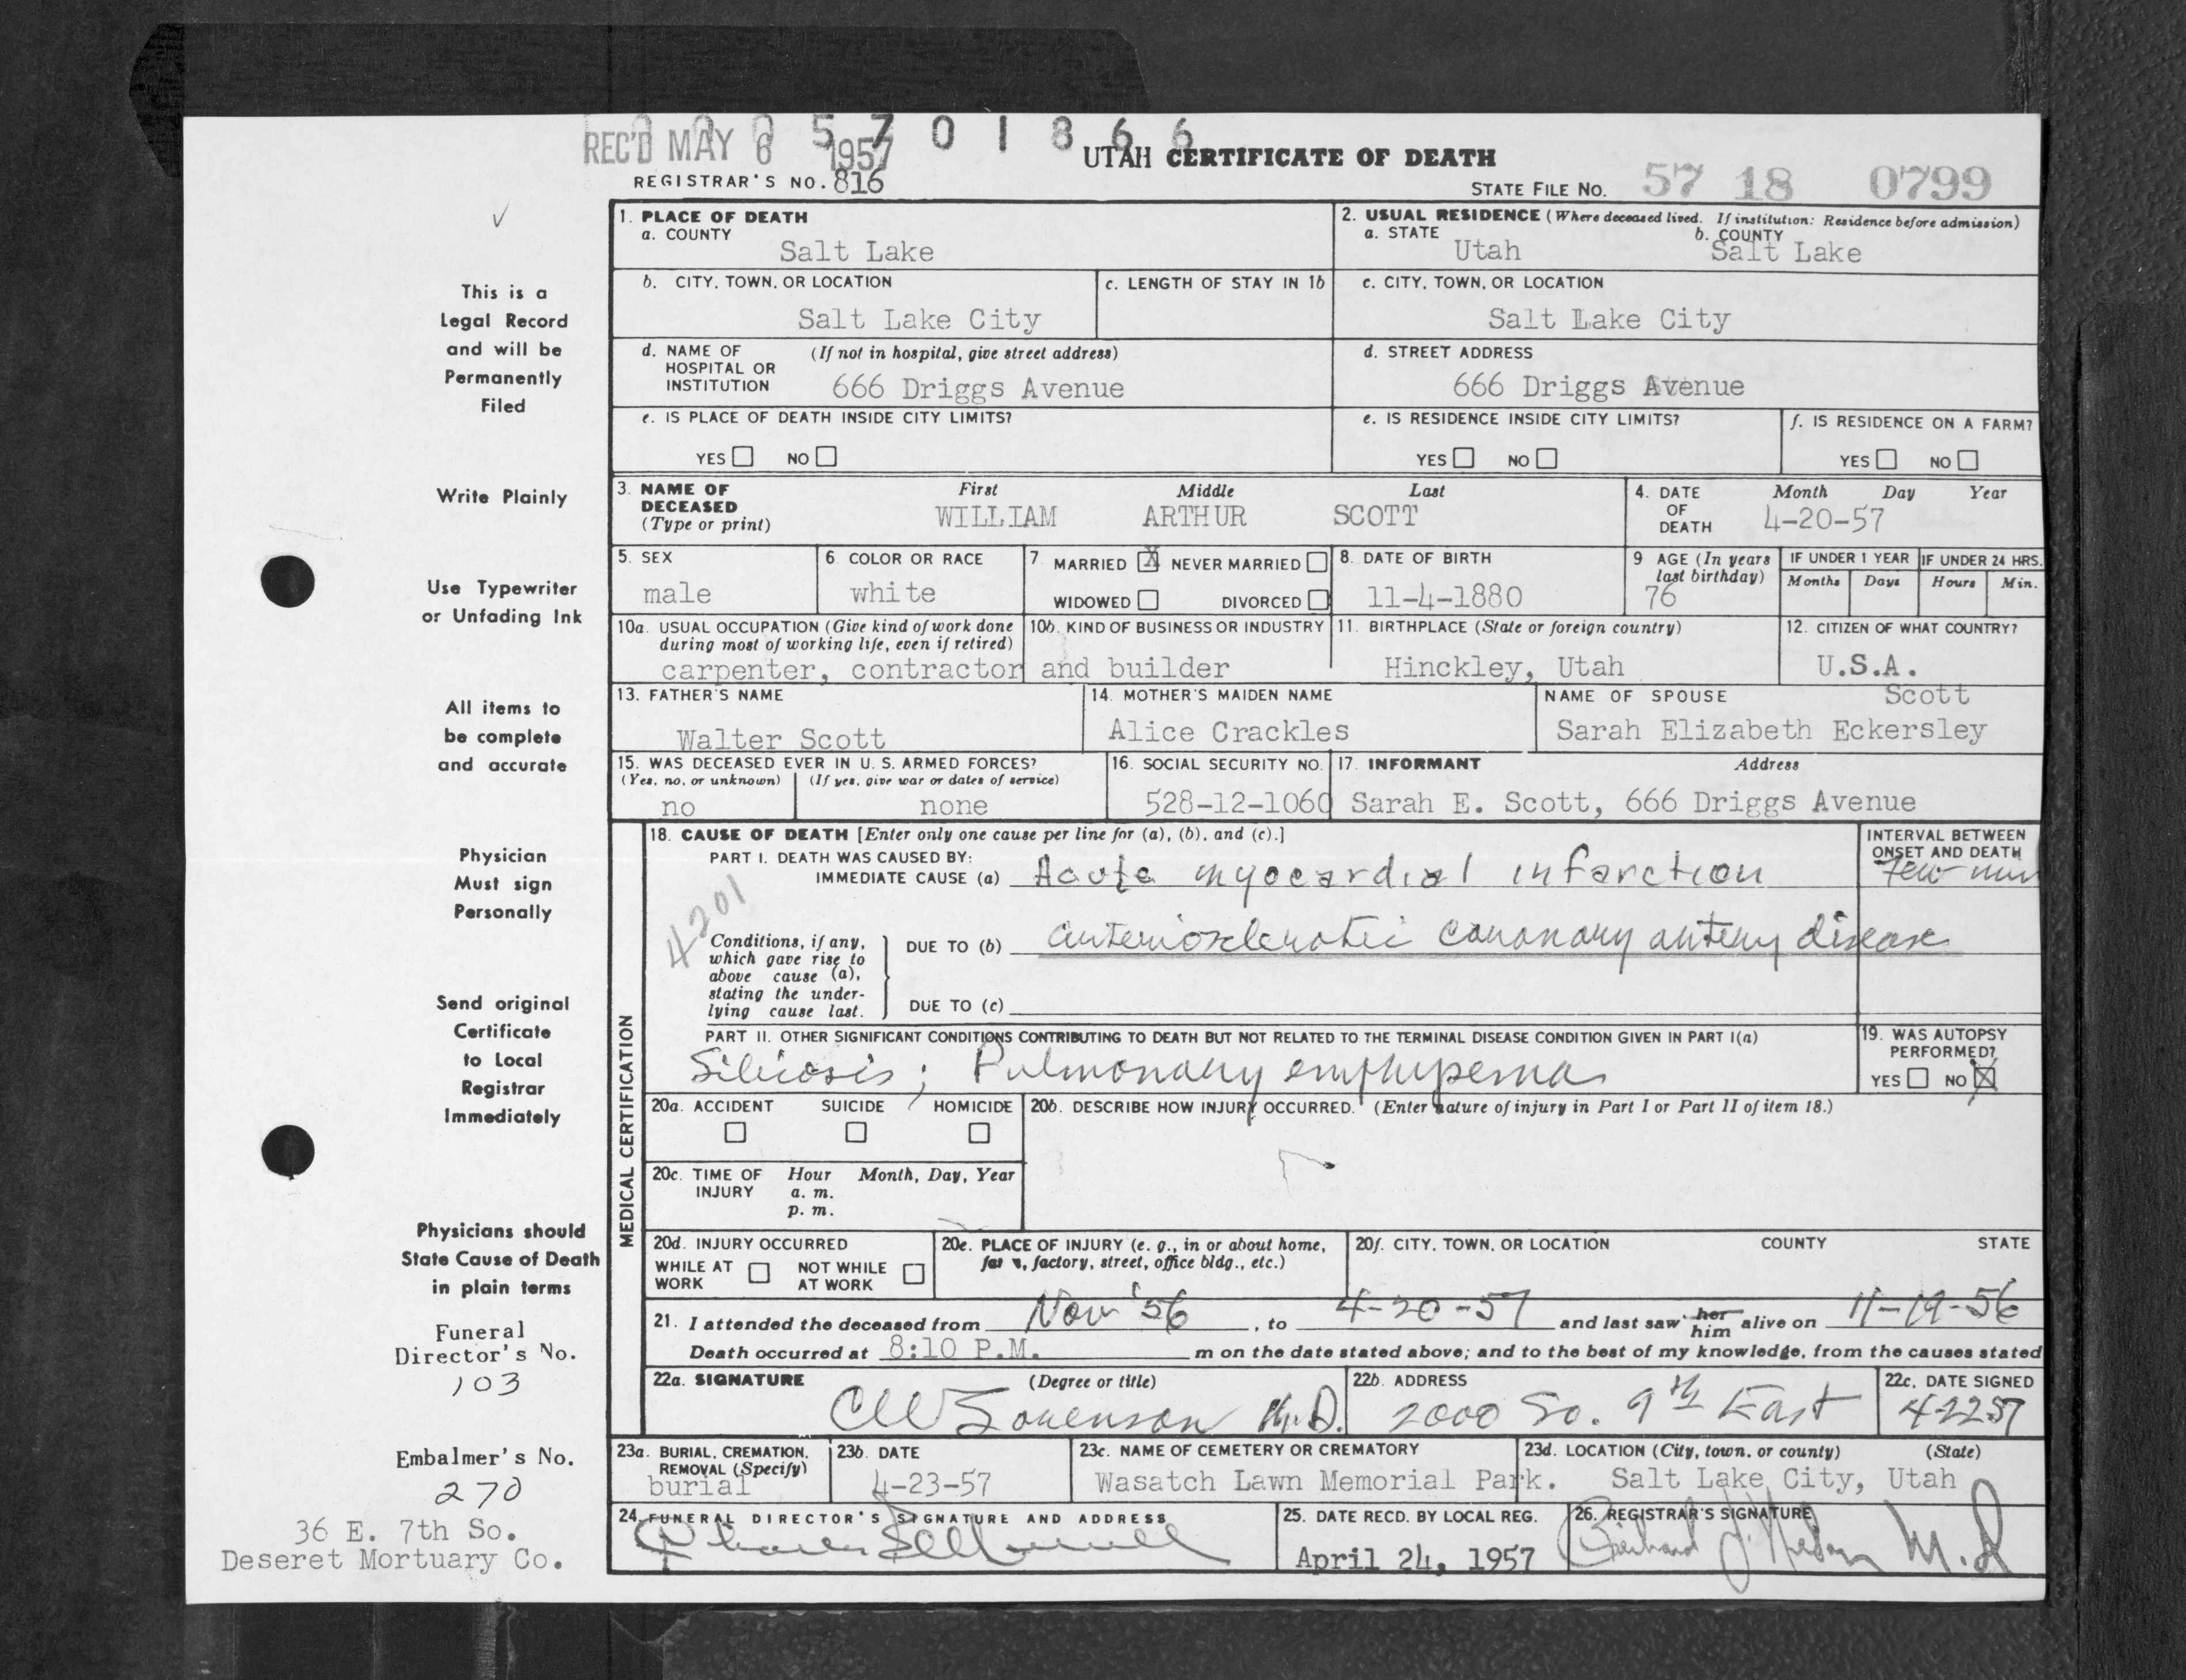 0 0 0 5 7 0 1 8 6 6
REC'D MAY 8 1957
UTAH CERTIFICATE OF DEATH
REGISTRAR'S NO. 816
STATE FILE NO. 57 18 0799
This is a
Legal Record
and will be
Permanently
Filed
Write Plainly
Use Typewriter
or Unfading Ink
All items to
be complete
and accurate
Physician
Must sign
Personally
Send original
Certificate
to Local
Registrar
Immediately
Physicians should
State Cause of Death
in plain terms
Funeral
Director's No.
103
Embalmer's No.
270
36 E. 7th So.
Deseret Mortuary Co.
1. PLACE OF DEATH
a. COUNTY
Salt Lake
2. USUAL RESIDENCE (Where deceased lived. If institution: Residence before admission)
a. STATE
Utah
b. COUNTY
Salt Lake
b. CITY, TOWN, OR LOCATION
Salt Lake City
c. LENGTH OF STAY IN 1b
c. CITY, TOWN, OR LOCATION
Salt Lake City
d. NAME OF HOSPITAL OR INSTITUTION
(If not in hospital, give street address)
666 Driggs Avenue
d. STREET ADDRESS
666 Driggs Avenue
e. IS PLACE OF DEATH INSIDE CITY LIMITS?
YES NO
e. IS RESIDENCE INSIDE CITY LIMITS?
YES NO
f. IS RESIDENCE ON A FARM?
YES NO
3. NAME OF DECEASED (Type or print)
First Middle Last
WILLIAM ARTHUR SCOTT
4. DATE OF DEATH
Month Day Year
4-20-57
5. SEX
male
6 COLOR OR RACE
white
7. MARRIED X NEVER MARRIED
WIDOWED DIVORCED
8. DATE OF BIRTH
11-4-1880
9 AGE (In years last birthday)
76
IF UNDER 1 YEAR
Months Days
IF UNDER 24 HRS.
Hours Min.
10a. USUAL OCCUPATION (Give kind of work done during most of working life, even if retired)
10b. KIND OF BUSINESS OR INDUSTRY
carpenter, contractor and builder
11. BIRTHPLACE (State or foreign country)
Hinckley, Utah
12. CITIZEN OF WHAT COUNTRY?
U.S.A.
13. FATHER'S NAME
Walter Scott
14. MOTHER'S MAIDEN NAME
Alice Crackles
NAME OF SPOUSE
Scott
Sarah Elizabeth Eckersley
15. WAS DECEASED EVER IN U. S. ARMED FORCES?
(Yes, no, or unknown) (If yes, give war or dates of service)
no none
16. SOCIAL SECURITY NO.
528-12-1060
17. INFORMANT Address
Sarah E. Scott, 666 Driggs Avenue
MEDICAL CERTIFICATION
18. CAUSE OF DEATH [Enter only one cause per line for (a), (b), and (c).]
PART I. DEATH WAS CAUSED BY:
IMMEDIATE CAUSE (a) Acute myocardial infarction
INTERVAL BETWEEN ONSET AND DEATH
Few min
4201
Conditions, if any, which gave rise to above cause (a), stating the underlying cause last.
DUE TO (b) arteriosclerotic coronary artery disease
DUE TO (c)
PART II. OTHER SIGNIFICANT CONDITIONS CONTRIBUTING TO DEATH BUT NOT RELATED TO THE TERMINAL DISEASE CONDITION GIVEN IN PART I(a)
Silicosis; Pulmonary emphysema
19. WAS AUTOPSY PERFORMED?
YES NO X
20a. ACCIDENT SUICIDE HOMICIDE
20b. DESCRIBE HOW INJURY OCCURRED. (Enter nature of injury in Part I or Part II of item 18.)
20c. TIME OF INJURY Hour Month, Day, Year
a. m.
p. m.
20d. INJURY OCCURRED
WHILE AT WORK NOT WHILE AT WORK
20e. PLACE OF INJURY (e. g., in or about home, farm, factory, street, office bldg., etc.)
20f. CITY, TOWN, OR LOCATION COUNTY STATE
21. I attended the deceased from Nov '56, to 4-20-57 and last saw her him alive on 11-19-56
Death occurred at 8:10 P.M. m on the date stated above; and to the best of my knowledge, from the causes stated
22a. SIGNATURE (Degree or title)
CW Sorenson M.D.
22b. ADDRESS
2000 So. 9th East
22c. DATE SIGNED
4-22-57
23a. BURIAL, CREMATION, REMOVAL (Specify)
burial
23b. DATE
4-23-57
23c. NAME OF CEMETERY OR CREMATORY
Wasatch Lawn Memorial Park.
23d. LOCATION (City, town, or county) (State)
Salt Lake City, Utah
24. FUNERAL DIRECTOR'S SIGNATURE AND ADDRESS
25. DATE RECD. BY LOCAL REG.
April 24, 1957
26. REGISTRAR'S SIGNATURE
M.D